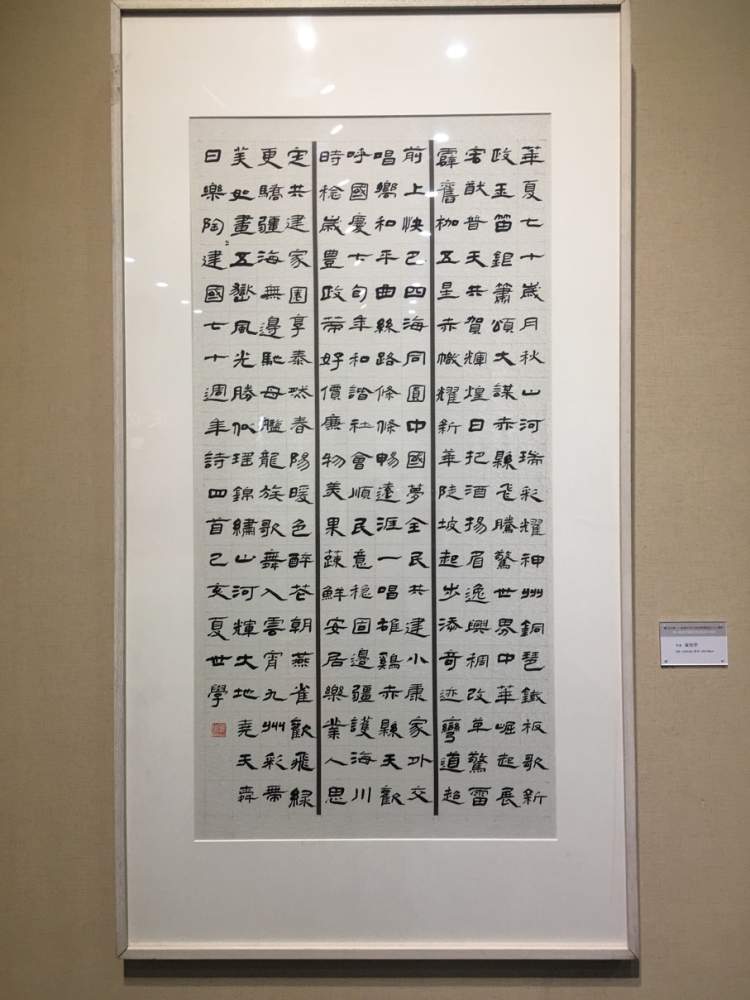 華夏七十歲月秋山河瑞彩耀神州銅琶鐵板歌新
政玉笛鉅簫頌大謀赤縣飛騰驚世界中華崛起展
宏猷普天共賀輝煌日把酒揚眉逸興稠改革驚雷
霹舊枷五星赤幟耀新華陡坡起步添奇迹彎道超
前上快已四海同圓中國夢全民共建小康家外交
唱響和平曲絲路條條暢遠涯一唱雄鷄赤縣天歡
呼國慶七旬年和諧社會順民意穩固邊疆護海川
時艙歲豐政策好價廉物美果蔬鮮安居樂業人思
定共建家園享泰然春陽暖色醉苍朝燕雀歡飛緑
更驕疆海無邊馳母艦龍族歌舞入雲宵九州彩帶
美如畫五嶽風光勝似瑶錦繡山河輝大地堯天舜
日樂陶〻建國七十週年詩四首己亥夏世學